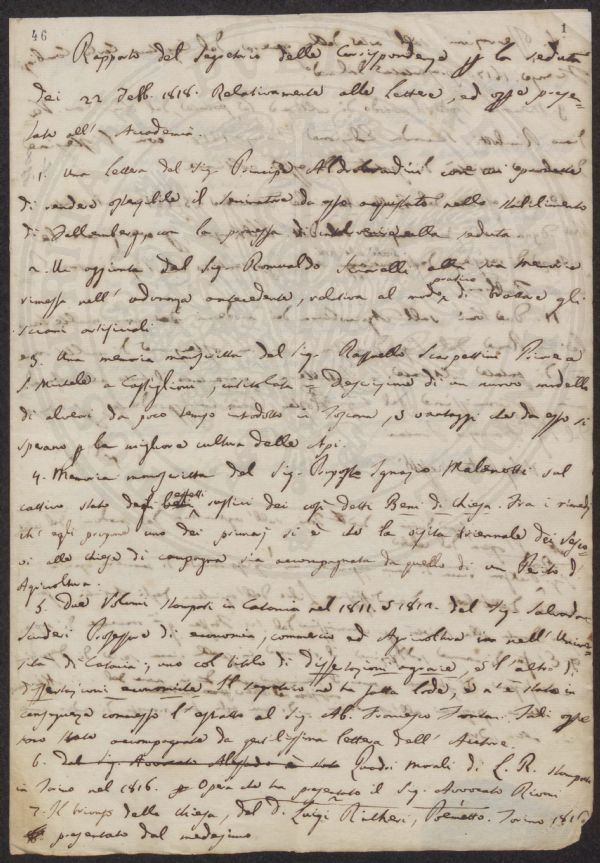 46 1
Rapporto del Segretario delle Corrispondenze per la seduta
dei 22 Febb. 1818. Relativamente alle Lettere, ed opere presen-
tate all' Accademia.
1. Una Lettera del Sig. Principe Aldobrandini con cui
di rendere ostensibile il Seminatore da esso acquistato nello stabilimento
di Fellemberg, con la promessa di nella seduta.
2. Un aggiunta del Sig. Romualdo alla sua Memoria
rimessa nell' adunanza antecedente, relativa al modo pratico di gli
sciami artificiali
3. Una memoria manoscritta del Sig. Raffaello Scarpettini Pievano a
S. Michele a Castiglioni, intitolata = Descrizione di un nuovo modello
di alveari da poco tempo introdotto in Toscana, e vantaggi che da esso si
sperano per la migliore cultura delle Api.
4. Memoria manoscritta del Sig. Proposto Ignazio Malenotti sul
cattivo stato degli effetti rustici dei così detti Beni di Chiesa. Fra i rimedj
ch' egli propone uno dei primarj si è che la visita triennale dei Vesco-
vi alle chiese di campagna sia accompagnata da quella di un Perito d'
Agricoltura.
5. Due Volumi stampati in Catania nel 1811. e 1812. dal Sig. Salvadore
Scuderi Professore di economia, commercio ed Agricoltura nell' Univer-
sità di Catania; uno col titolo di dissertazioni agrarie, e l'altro di
dissertazioni economiche. Il segretario ne ha fatta lode, e n'è stato in
conseguenza commesso l'estratto al Sig. Ab. Francesco Fontani. Tali opere
sono state accompagnate da gentilissima lettera dell' Autore.
6. Dal Sig. Avvocato è stato Quadri morali di L. R. stampati
in Torino nel 1816. Opera che ha presentato il Sig. Avvocato
7. Il trionfo della Chiesa, del D. Luigi Richeri, Poemetto. Torino 1816
presentato dal medesimo